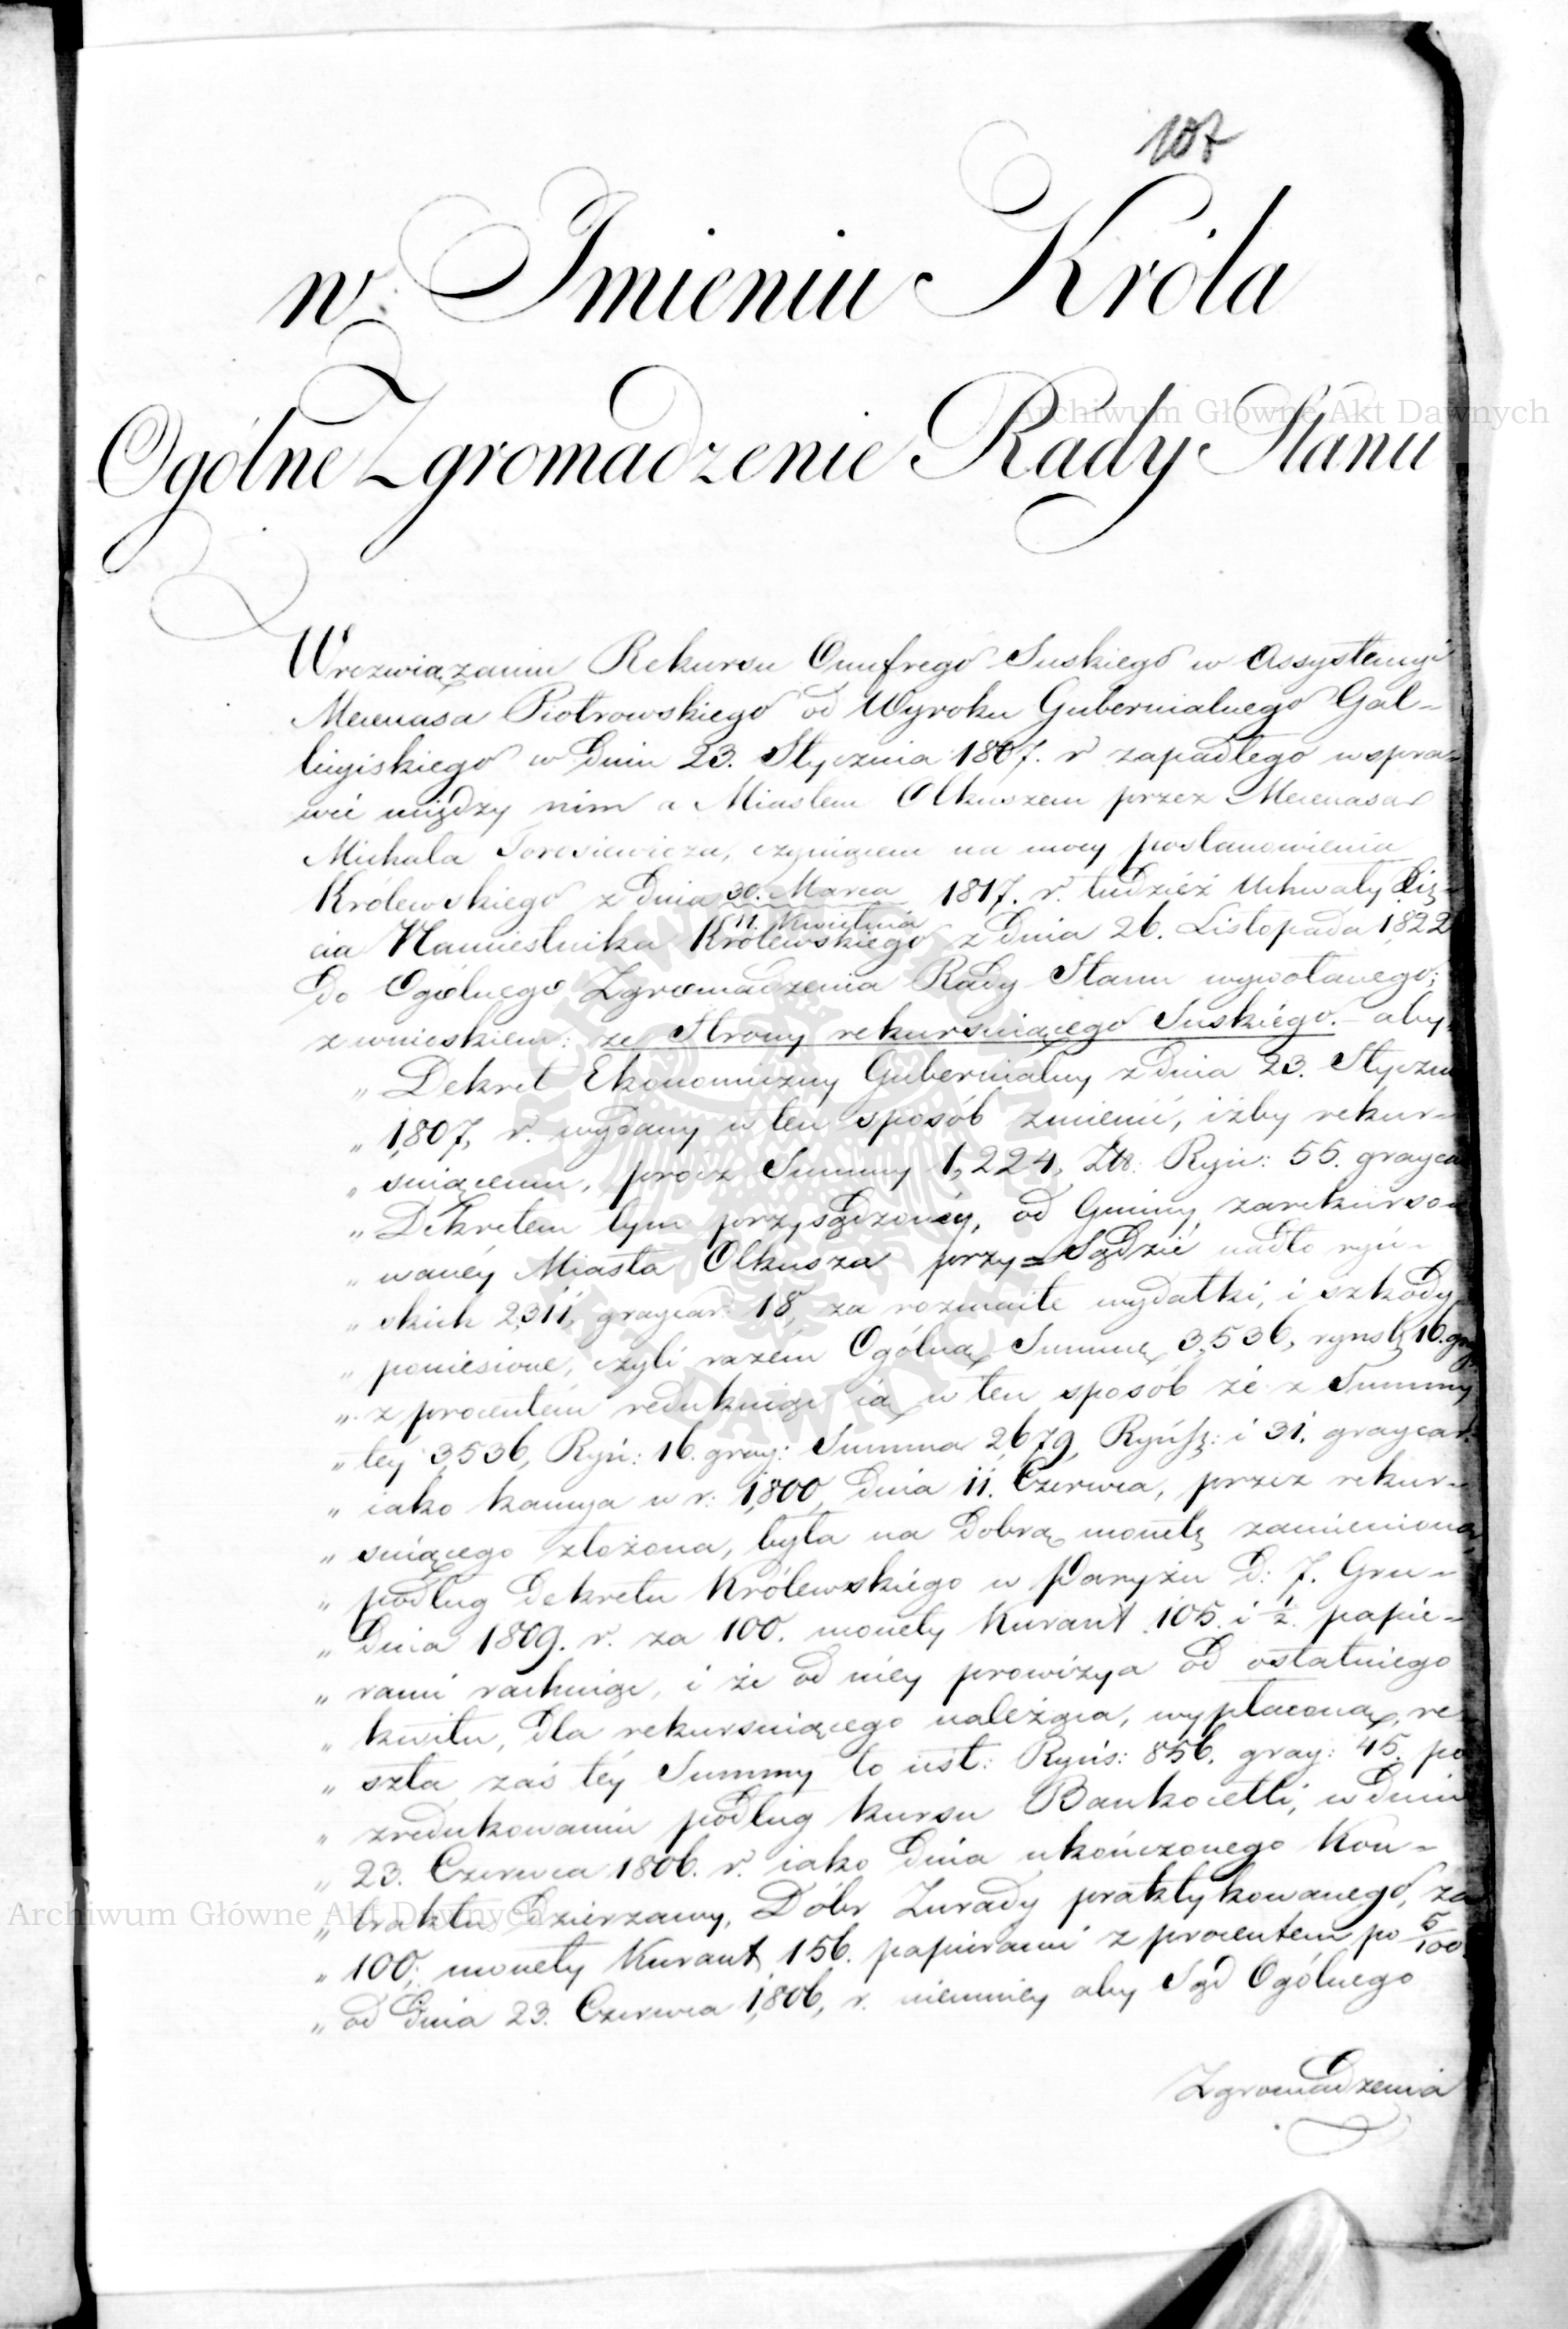 107
w Imieniu Króla
Ogólne Zgromadzenie Rady Stanu
Archiwum Główne Akt Dawnych
W rozwiązaniu Rekursu Onufrego Suskiego w Assystencyi
Mecenasa Piotrowskiego od Wyroku Gubernialnego Gal-
licyiskiego w dniu 23. Stycznia 1807. r zapadłego w spra-
wie między nim a Miastem Olkuszem przez Mecenasa
Michała czyniącem na mocy postanowienia
Królewskiego z dnia 30. Marca 1817. r. tudzież Uchwały Xię-
11. Kwietnia
cia Namiestnika Królewskiego z dnia 26. Listopada 1822
do Ogólnego Zgromadzenia Rady Stanu wywołanego;
z wnioskiem: ze Strony rekursuiącego Suskiego. - aby
„ Dekret Ekonomiczny Gubernialny z dnia 23. Styczn
„ 1807, r. wydany w ten sposób zmienić, iżby rekur-
„ suiącemu, prócz Summy 1,224, Złt: Ryń: 55. grayca
„ Dekretem tym przysądzoney, od Gminy zarekurso-
„ waney Miasta Olkusza przy=Sądzić nadto ryń-
„ skich 2,311, graycar. 18, za rozmaite wydatki, i szkody
„ poniesione, czyli razem Ogólną Summę 3,536, ryńsk 16. gray
„ z procentem redukuiąc ią w ten sposób że z Summy
„ tey 3,536, Ryń: 16. gray: Summa 2,679, Ryńsk: i 31. graycar:
„ iako kaucya w r. 1,800, dnia 11. Czerwca, przez rekur-
„ suiącego złożona, była na dobrą monetę zamieniona,
„ podług dekretu Królewskiego w Paryżu d: 7. Gru-
„ dnia 1809. r. za 100. monety Kurant 105. i ½. papie-
„ rami rachuiąc, i że od niey prowizya od ostatniego
„ kwitu, dla rekursuiącego należąca, wypłaconą, re
„ szta zaś téy Summy to iest: Ryńs: 856. gray: 45. po
„ zredukowaniu podług kursu Bankocetli, w dniu
„ 23. Czerwca 1806. r. iako dnia ukończonego Kon-
„ traktu Dzierzawy, Dóbr Zurady praktykowanego, za
Archiwum Główne Akt Dawnych
„ 100, monety Kurant 156. papierami z procentem po 5/100
„ od dnia 23. Czerwca 1,806, r. niemniey aby Sąd Ogólnego
Zgromadzenia